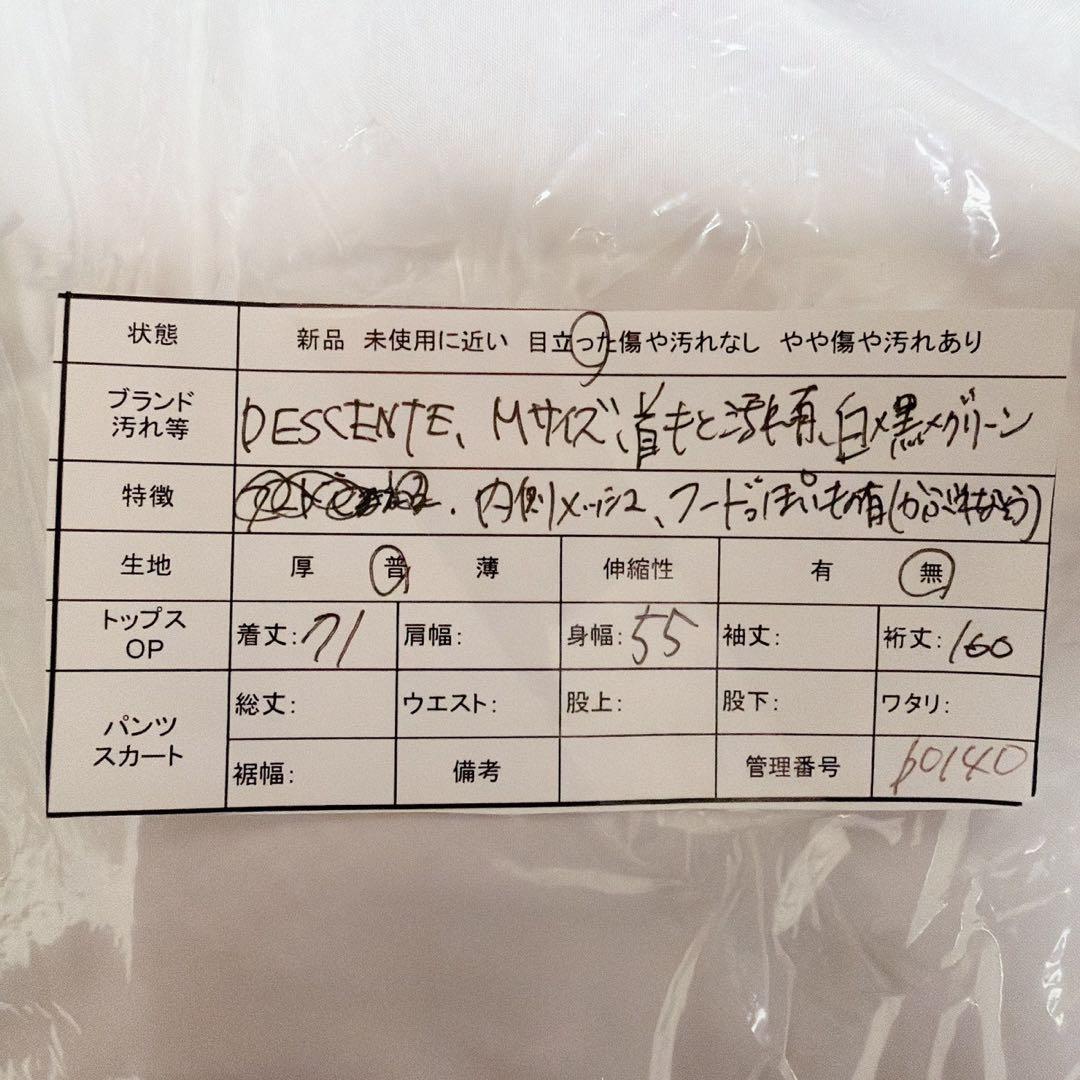 状態 新品 未使用に近い 目立った傷や汚れなし やや傷や汚れあり
ブランド
汚れ等 DESCENTE、Mサイズ、首もと汚れ有、白×黒×グリーン
特徴 内側メッシュ、フードっぽいもの有(かぶれなそう)
生地 厚 普 薄 伸縮性 有 無
トップス
OP 着丈:71 肩幅: 身幅:55 袖丈: 裄丈:160
パンツ
スカート 総丈: ウエスト: 股上: 股下: ワタリ:
裾幅: 備考 管理番号 b0140